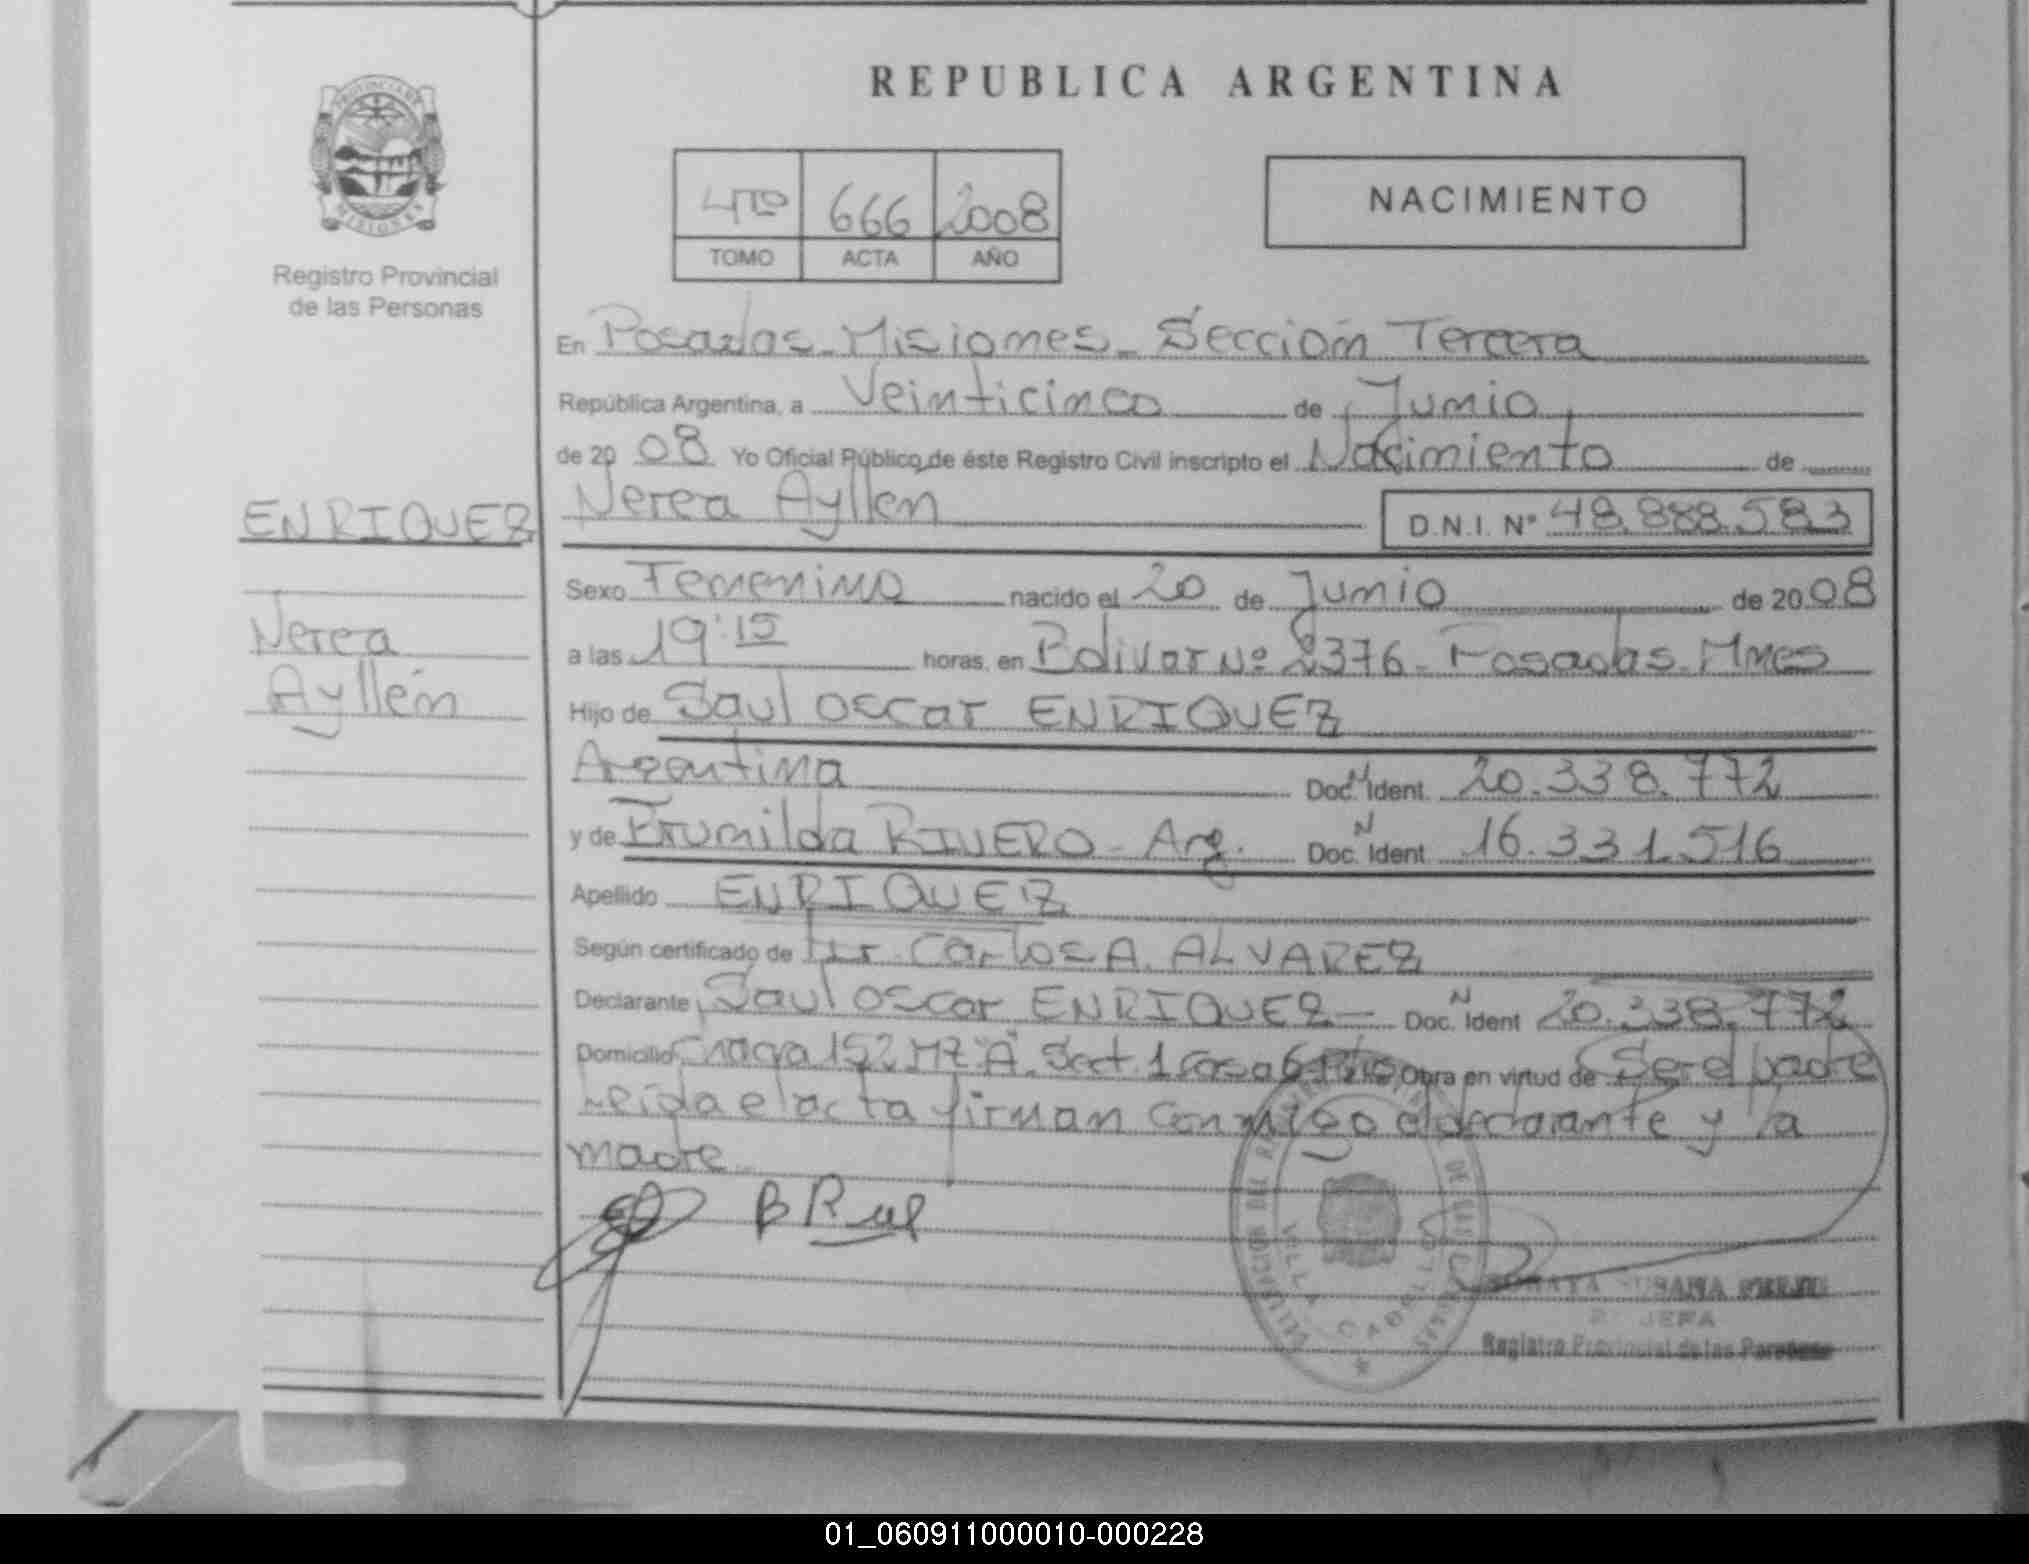 REPUBLICA ARGENTINA
PROVINCIA DE
MISIONES
Registro Provincial
de las Personas
4to 666 2008
TOMO ACTA AÑO
NACIMIENTO
En Posadas - Misiones - Sección Tercera
República Argentina, a Veinticinco de Junio
de 2008 Yo Oficial Público de éste Registro Civil inscripto el Nacimiento de
ENRIQUEZ
Nerea Ayllen D.N.I. Nº 48.888.583
Sexo Femenino nacido el 20 de Junio de 2008
Nerea
Ayllén
a las 19:15 horas, en Bolivar Nº 2376 - Posadas - Mnes
Hijo de Saul Oscar ENRIQUEZ
Argentina Doc. N Ident. 20.338.772
y de Brunilda RIVERO - Arg. Doc. N Ident 16.331.516
Apellido ENRIQUEZ
Según certificado de Dr. Carlos A. ALVAREZ
Declarante Saul Oscar ENRIQUEZ - Doc. N Ident 20.338.772
Domicilio Chacra 152 MZ "A" Sect. 1 Casa 6 Obra en virtud de Ser el padre
Leída el acta firman conmigo el declarante y la
madre
DELEGACION DEL REGISTRO DE LAS PERSONAS
VILLA CABELLO
SUSANA
JEFA
Registro Provincial de las Personas
01_060911000010-000228